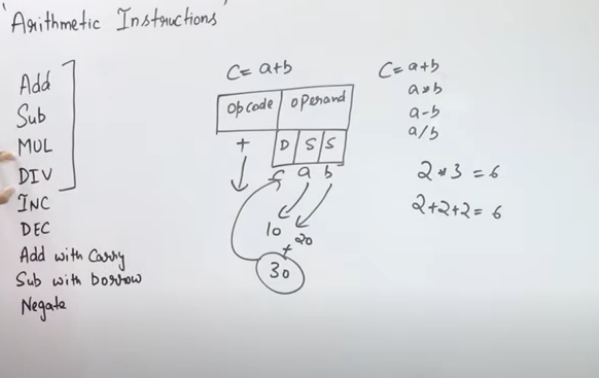 'Arithmetic Instructions'
Add
Sub
MUL
DIV
INC
DEC
Add with Carry
Sub with borrow
Negate
C = a+b
Opcode operand
+ D S S
c a b
10 + 20
30
C = a+b
a*b
a-b
a/b
2 * 3 = 6
2+2+2 = 6